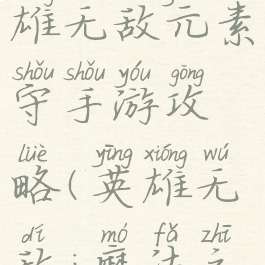 雄无敌元素
shǒu shǒu yóu gōng
守手游攻
lüè yīng xióng wú
略(英雄无
dí mó fǎ zhī
敌:魔法之